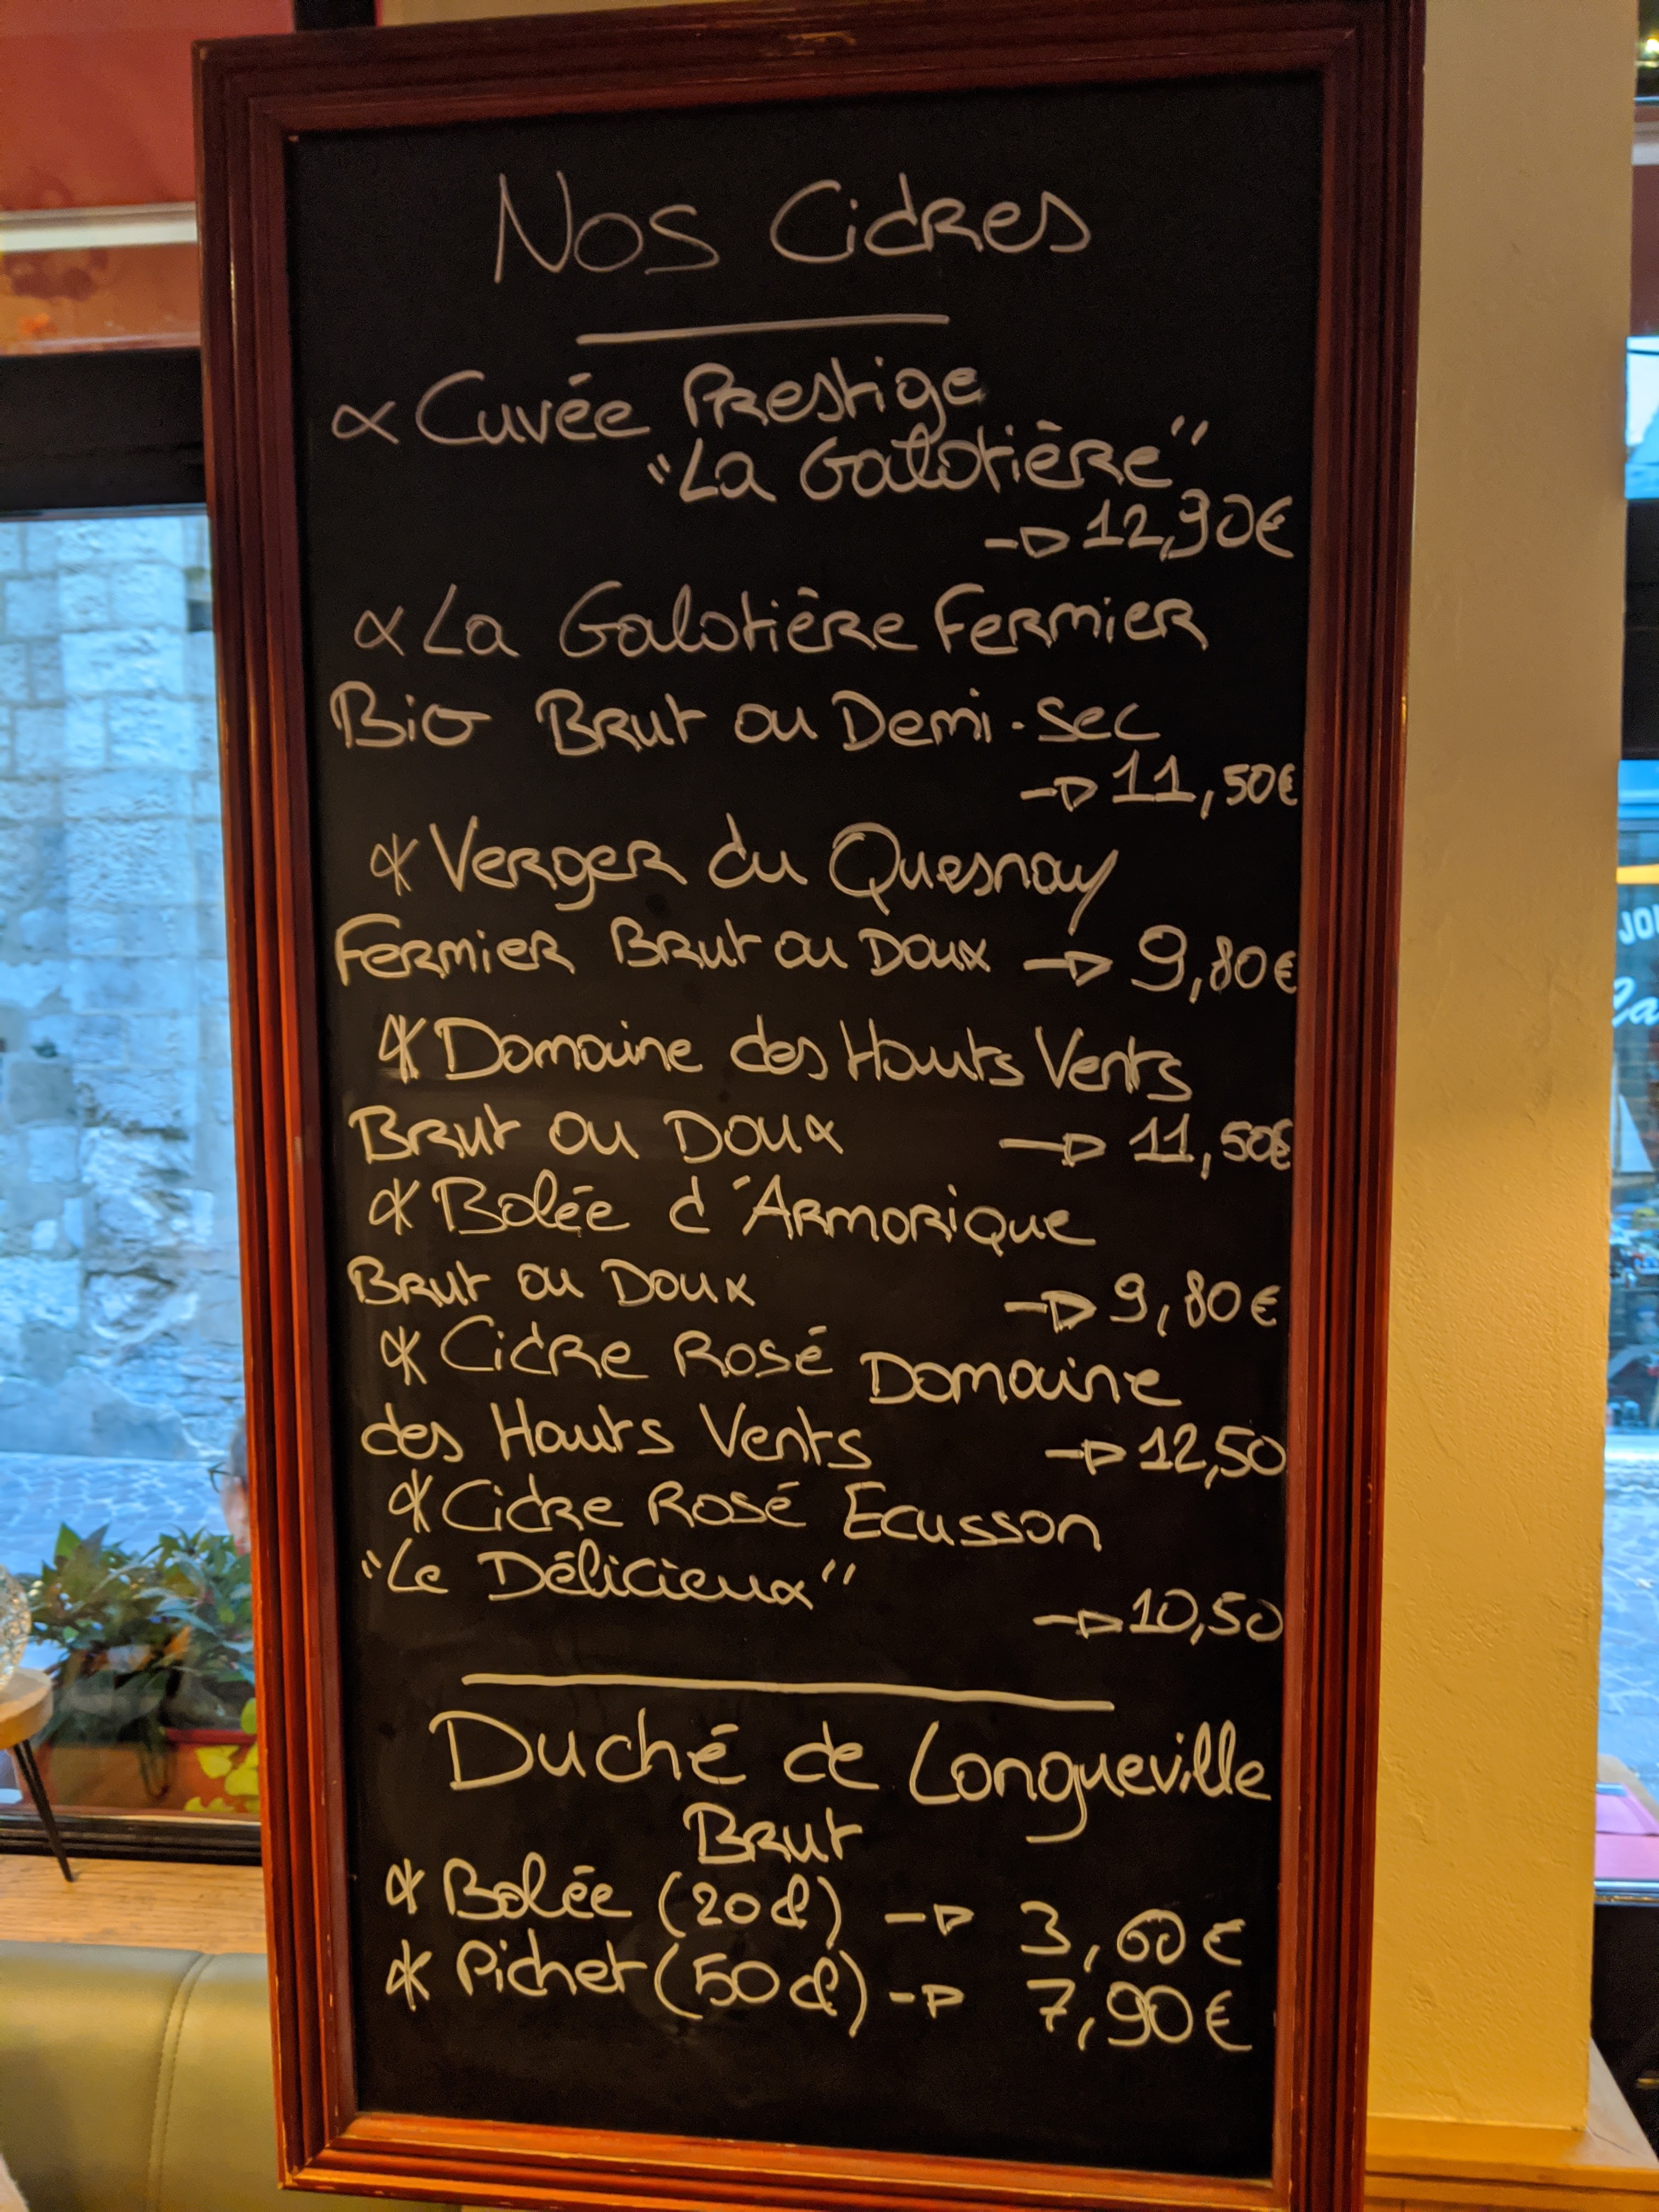 Nos Cidres
* Cuvée Prestige
"La Galotière"
→ 12,90€
* La Galotière Fermier
Bio Brut ou Demi-sec
→ 11,50€
* Verger du Quesnay
Fermier Brut ou Doux → 9,80€
* Domaine des Hauts Vents
Brut ou Doux → 11,50€
* Bolée d'Armorique
Brut ou Doux → 9,80€
* Cidre Rosé Domaine
des Hauts Vents → 12,50
* Cidre Rosé Ecusson
"Le Délicieux"
→ 10,50
Duché de Longueville
Brut
* Bolée (20cl) → 3,60€
* Pichet (50cl) → 7,90€